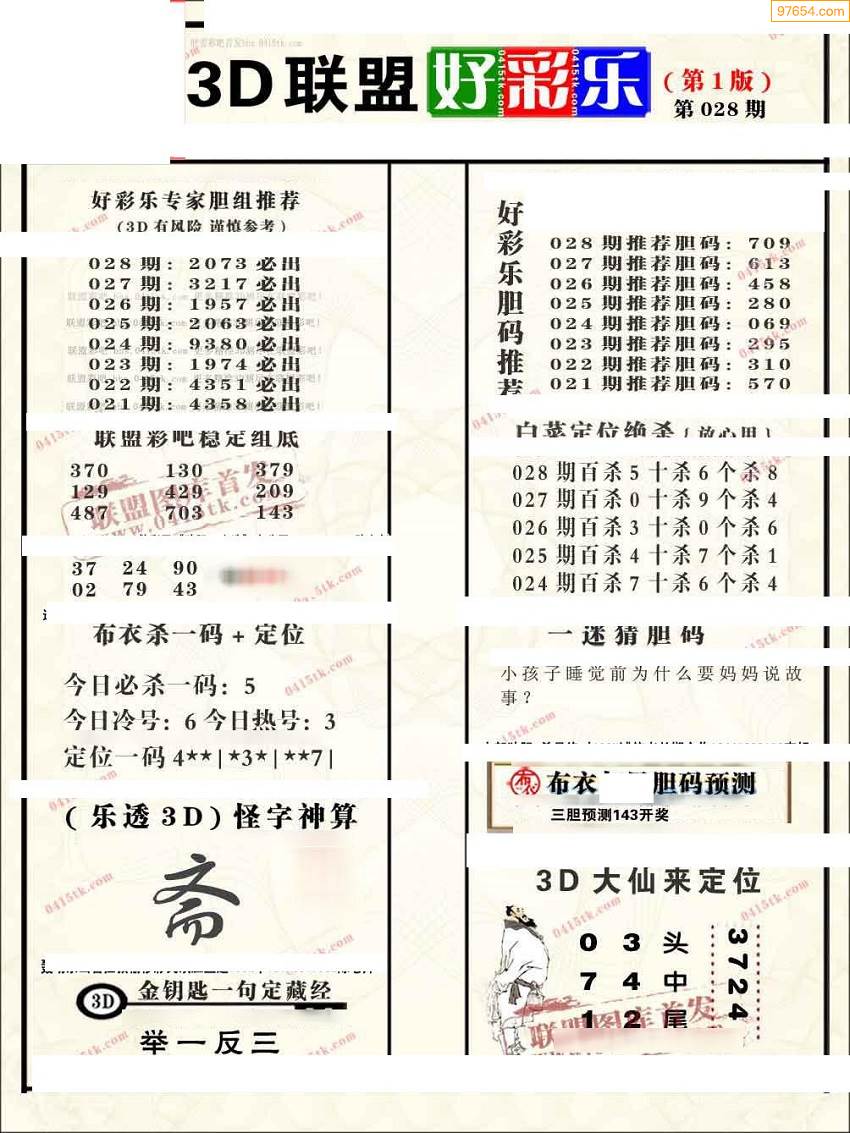 97654.com
3D联盟好彩乐
(第1版)
第028期
好彩乐专家胆组推荐
(3D有风险 谨慎参考)
028期: 2073必出
027期: 3217必出
026期: 1957必出
025期: 2063必出
024期: 9380必出
023期: 1974必出
022期: 4351必出
021期: 4358必出
联盟彩吧稳定组底
370 130 379
129 429 209
487 703 143
37 24 90
02 79 43
布衣杀一码+定位
今日必杀一码: 5
今日冷号: 6 今日热号: 3
定位一码 4**|*3*|**7|
(乐透3D)怪字神算
斋
3D 金钥匙一句定藏经
举一反三
好彩乐胆码推荐
028期推荐胆码: 709
027期推荐胆码: 613
026期推荐胆码: 458
025期推荐胆码: 280
024期推荐胆码: 069
023期推荐胆码: 295
022期推荐胆码: 310
021期推荐胆码: 570
白菜定位绝杀{放心用}
028期百杀5十杀6个杀8
027期百杀0十杀9个杀4
026期百杀3十杀0个杀6
025期百杀4十杀7个杀1
024期百杀7十杀6个杀4
一迷猜胆码
小孩子睡觉前为什么要妈妈说故
事?
布衣 胆码预测
三胆预测143开奖
3D大仙来定位
0 3 头
7 4 中
1 2 尾
3724
联盟图库首发
www.0415tk.com
联盟图库首发
0415tk.com